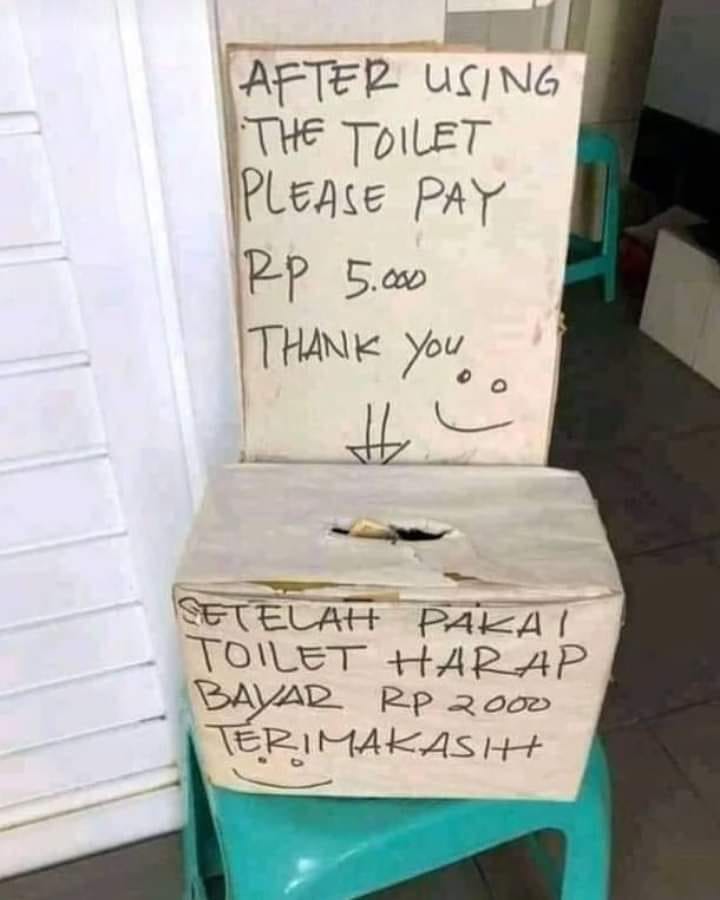 AFTER USING
THE TOILET
PLEASE PAY
Rp 5.000
THANK YOU
SETELAH PAKAI
TOILET HARAP
BAYAR RP 2000
TERIMAKASIH